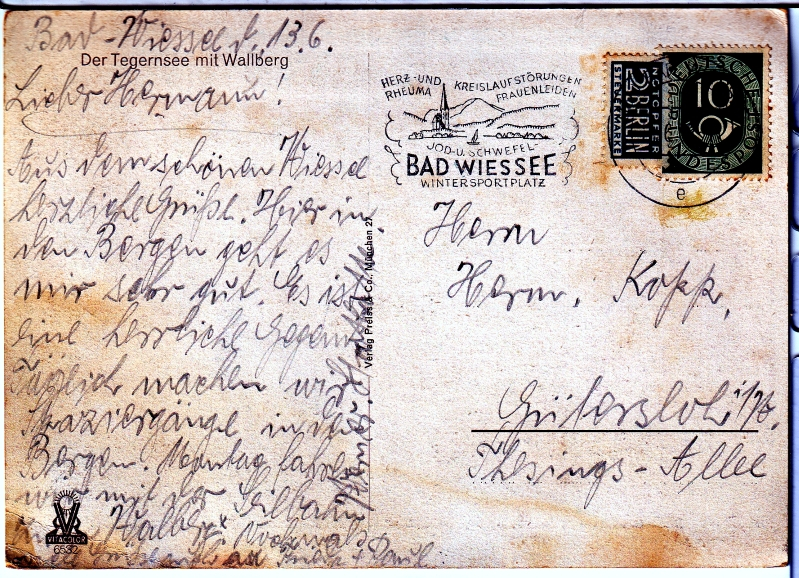 Bad-Wiessee d. 13.6.
Der Tegernsee mit Wallberg
Lieber Hermann!
Aus dem schönen Wiessee
herzliche Grüße. Hier in
den Bergen geht es
mir sehr gut. Es ist
eine herrliche Gegend
Täglich machen wir
Spaziergänge in den
Bergen. Montag fahren
wir mit der Seilbahn
an + Paul
VITACOLOR
6532
Verlag Preiss & Co., München 27
HERZ- UND KREISLAUFSTÖRUNGEN
RHEUMA FRAUENLEIDEN
JOD-U. SCHWEFEL-
BAD WIESSEE
WINTERSPORTPLATZ
NOTOPFER
2 BERLIN
STEUERMARKE
DEUTSCHE
BUNDESPOST
10
e
Herrn
Herm. Kopp,
Gütersloh i/W.
Thesings-Allee